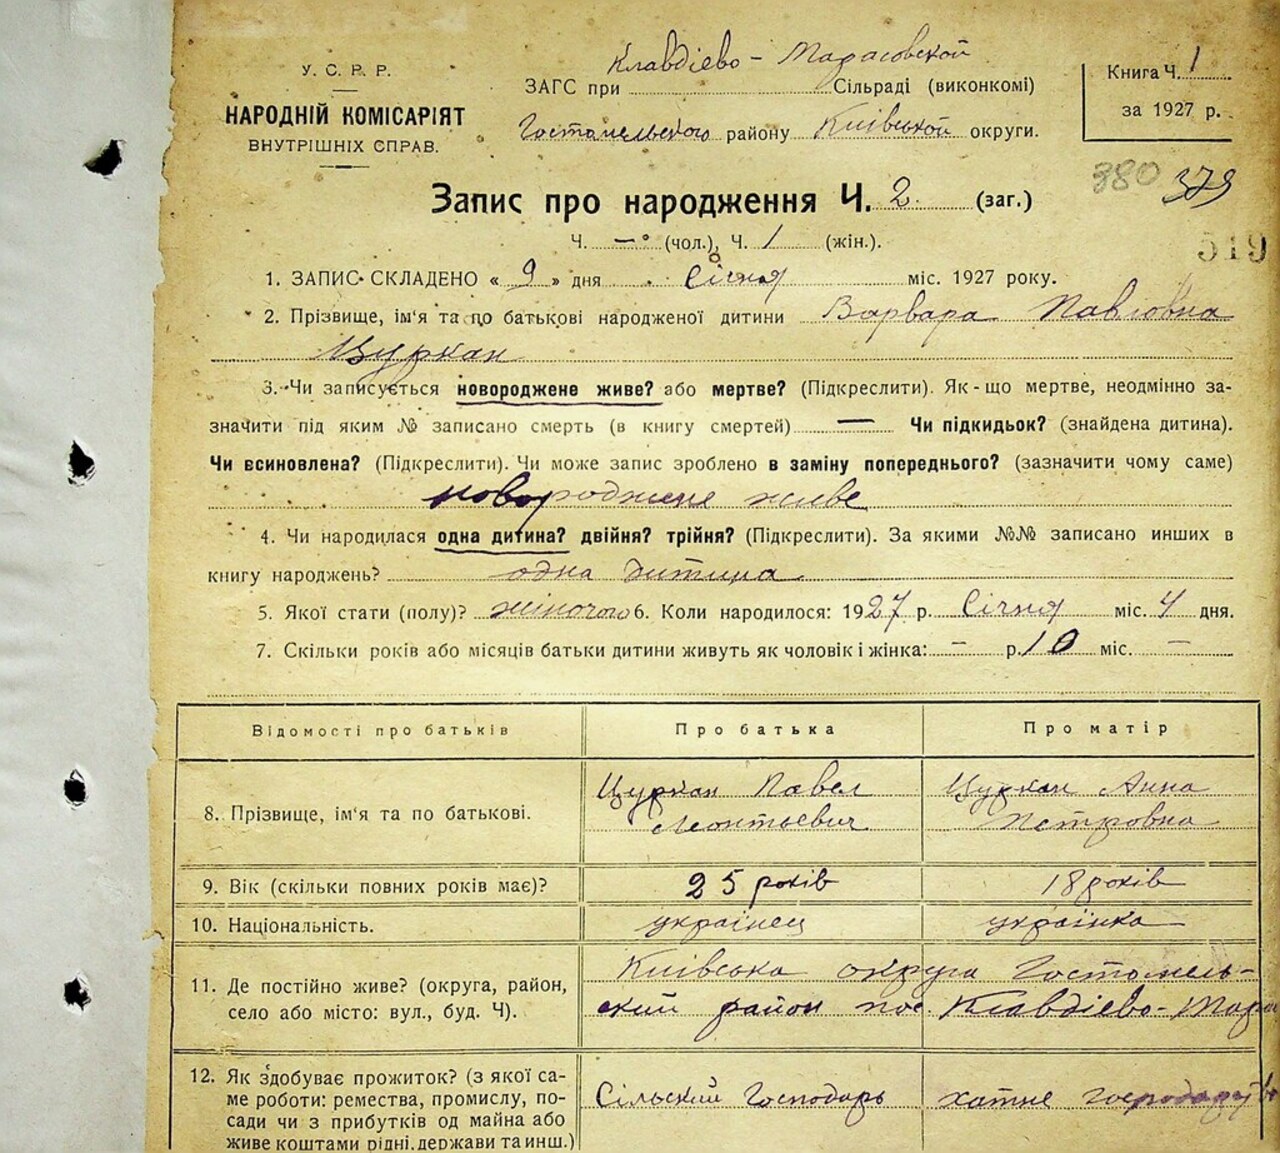 У. С. Р. Р.
НАРОДНІЙ КОМІСАРІЯТ
ВНУТРІШНІХ СПРАВ.
Клавдієво - Тарасовской
ЗАГС при Сільраді (виконкомі)
Гостомельского району Київської округи.
Книга Ч. 1
за 1927 р.
380 379
519
Запис про народження Ч. 2. (заг.)
Ч. — (чол.), Ч. 1 (жін.).
1. ЗАПИС СКЛАДЕНО « 9 » дня Січня міс. 1927 року.
2. Прізвище, ім'я та по батькові народженої дитини Варвара Павловна
Цуркан
3. Чи записується новороджене живе? або мертве? (Підкреслити). Як-що мертве, неодмінно за-
значити під яким № записано смерть (в книгу смертей) — Чи підкидьок? (знайдена дитина).
Чи всиновлена? (Підкреслити). Чи може запис зроблено в заміну попереднього? (зазначити чому саме)
новороджене живе
4. Чи народилася одна дитина? двійня? трійня? (Підкреслити). За якими №№ записано инших в
книгу народжень? одна дитина
5. Якої стати (полу)? жіночого 6. Коли народилося: 1927 р. Січня міс. 4 дня.
7. Скільки років або місяців батьки дитини живуть як чоловік і жінка: — р. 10 міс. —
Відомості про батьків Про батька Про матір
8. Прізвище, ім'я та по батькові. Цуркан Павел Цуркан Анна
Леонтьевич Петровна
9. Вік (скільки повних років має)? 25 років 18 років
10. Національність. українец українка
11. Де постійно живе? (округа, район, село або місто: вул., буд. Ч). Київська округа Гостомель-
ский район пос. Клавдієво-Тара
12. Як здобуває прожиток? (з якої са-
ме роботи: ремества, промислу, по- Сільский Господарь хатне
сади чи з прибутків од майна або
живе коштами рідні, держави та инш.)